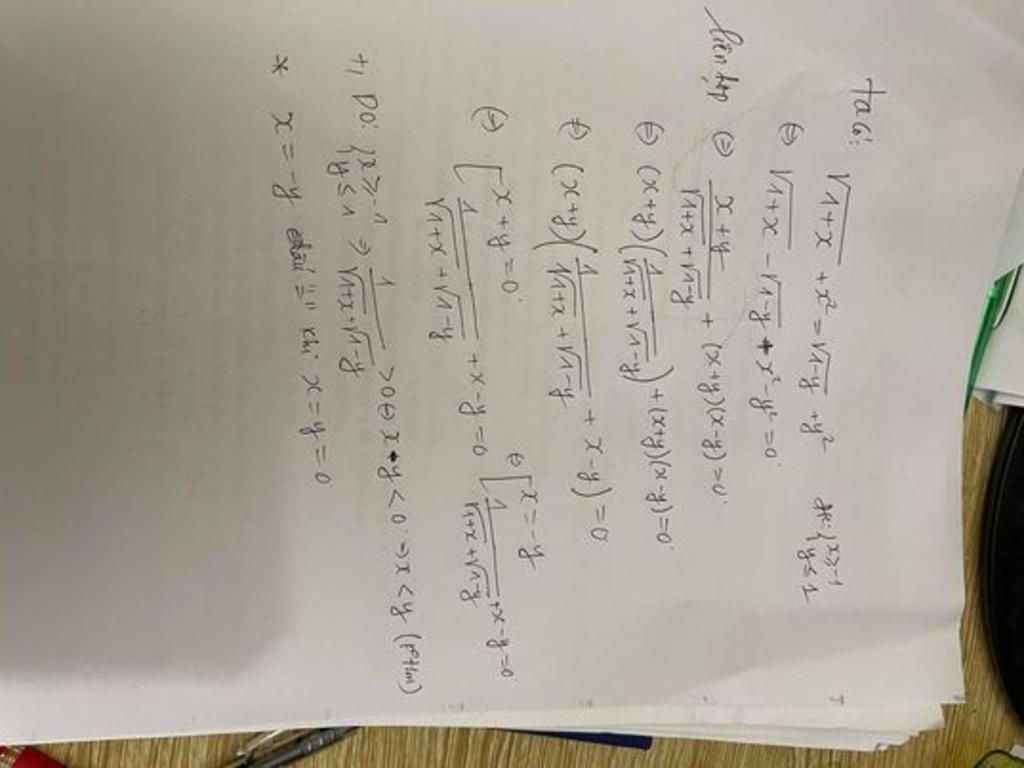 Ta có: √(1+x) + x² = √(1-y) + y² đk: {x ≥ -1 y ≤ 1
⇔ √(1+x) - √(1-y) + x² - y² = 0
liên hợp ⇔ (x+y)/(√(1+x) + √(1-y)) + (x+y)(x-y) = 0
⇔ (x+y)(1/(√(1+x) + √(1-y))) + (x+y)(x-y) = 0
⇔ (x+y)(1/(√(1+x) + √(1-y)) + x-y) = 0
⇔ [x+y = 0 ⇔ [x = -y
1/(√(1+x) + √(1-y)) + x-y = 0 1/(√(1+x) + √(1-y)) + x-y = 0
+, Do: {x ≥ -1 y ≤ 1 ⇒ 1/(√(1+x) + √(1-y)) > 0 ⇔ x y > 0 ⇒ x < y
* x = -y "=" khi x = y = 0